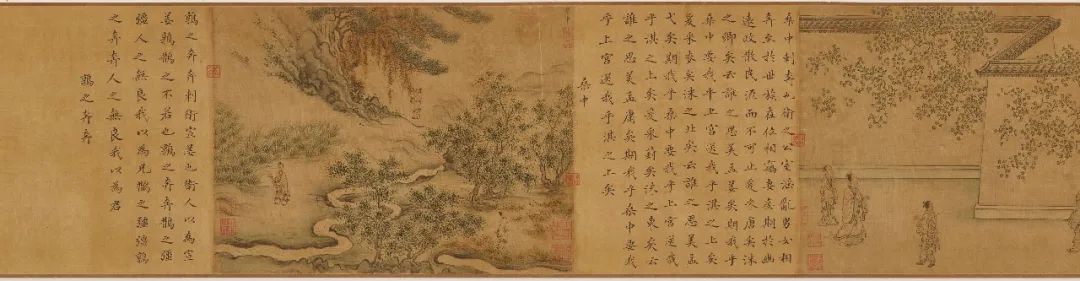 桑中刺奔也衛之公室淫亂男女相
奔至於世族在位相竊妻妾期於幽
遠政散民流而不可止爰采唐矣沬
之鄉矣云誰之思美孟姜矣期我乎
桑中要我乎上宮送我乎淇之上矣
爰采麥矣沬之北矣云誰之思美孟
弋矣期我乎桑中要我乎上宮送我
乎淇之上矣爰采葑矣沬之東矣云
誰之思美孟庸矣期我乎桑中要我
乎上宮送我乎淇之上矣
桑中
鶉之奔奔刺衛宣姜也衛人以為宣
姜鶉鵲之不若也鶉之奔奔鵲之彊
彊人之無良我以為兄鵲之彊彊鶉
之奔奔人之無良我以為君
鶉之奔奔